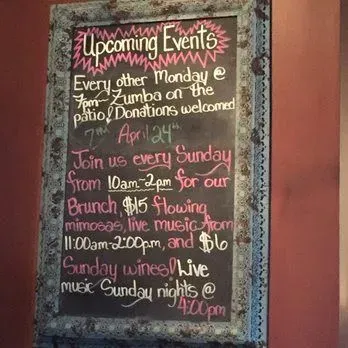 Upcoming Events
Every other Monday @
7pm~ Zumba on the
patio! Donations welcomed
April 24th
Join us every Sunday
from 10am~2pm for our
Brunch, $15 flowing
mimosas, live music from
11:00am-2:00pm, and $6
Sunday wines! Live
music Sunday nights @
4:00pm